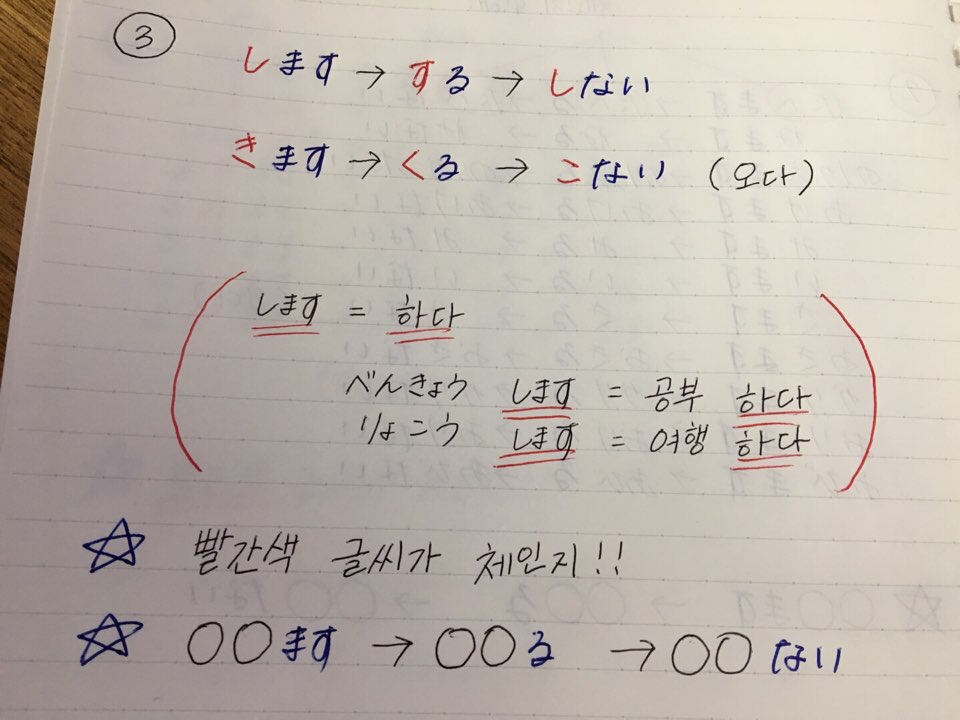 ③
します → する → しない
きます → くる → こない (오다)
します = 하다
べんきょう します = 공부 하다
りょこう します = 여행 하다
☆ 빨간색 글씨가 체인지!!
☆ ○○ます → ○○る → ○○ない